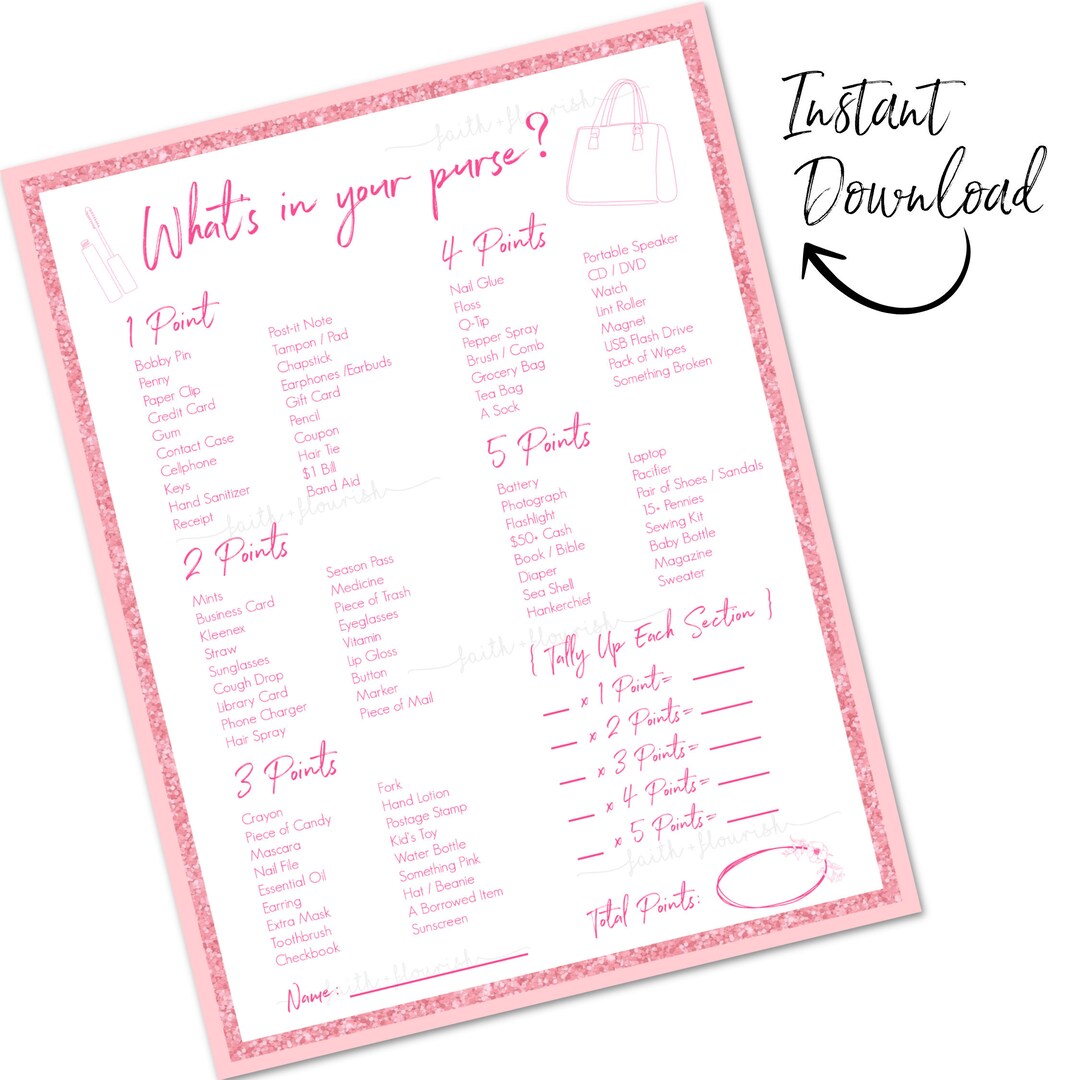 What's in your purse?
1 Point
Bobby Pin
Penny
Paper Clip
Credit Card
Gum
Contact Case
Cellphone
Keys
Hand Sanitizer
Receipt
Post-it Note
Tampon / Pad
Chapstick
Earphones /Earbuds
Gift Card
Pencil
Coupon
Hair Tie
$1 Bill
Band Aid
2 Points
Mints
Business Card
Kleenex
Straw
Sunglasses
Cough Drop
Library Card
Phone Charger
Hair Spray
Season Pass
Medicine
Piece of Trash
Eyeglasses
Vitamin
Lip Gloss
Button
Marker
Piece of Mail
3 Points
Crayon
Piece of Candy
Mascara
Nail File
Essential Oil
Earring
Extra Mask
Toothbrush
Checkbook
Fork
Hand Lotion
Postage Stamp
Kid's Toy
Water Bottle
Something Pink
Hat / Beanie
A Borrowed Item
Sunscreen
Name:
4 Points
Nail Glue
Floss
Q-Tip
Pepper Spray
Brush / Comb
Grocery Bag
Tea Bag
A Sock
Portable Speaker
CD / DVD
Watch
Lint Roller
Magnet
USB Flash Drive
Pack of Wipes
Something Broken
5 Points
Battery
Photograph
Flashlight
$50+ Cash
Book / Bible
Diaper
Sea Shell
Hankerchief
Laptop
Pacifier
Pair of Shoes / Sandals
15+ Pennies
Sewing Kit
Baby Bottle
Magazine
Sweater
{ Tally Up Each Section }
x 1 Point=
x 2 Points=
x 3 Points=
x 4 Points=
x 5 Points=
Total Points:
Instant
Download
faith + flourish
faith + flourish
faith + flourish
faith + flourish
faith + flourish